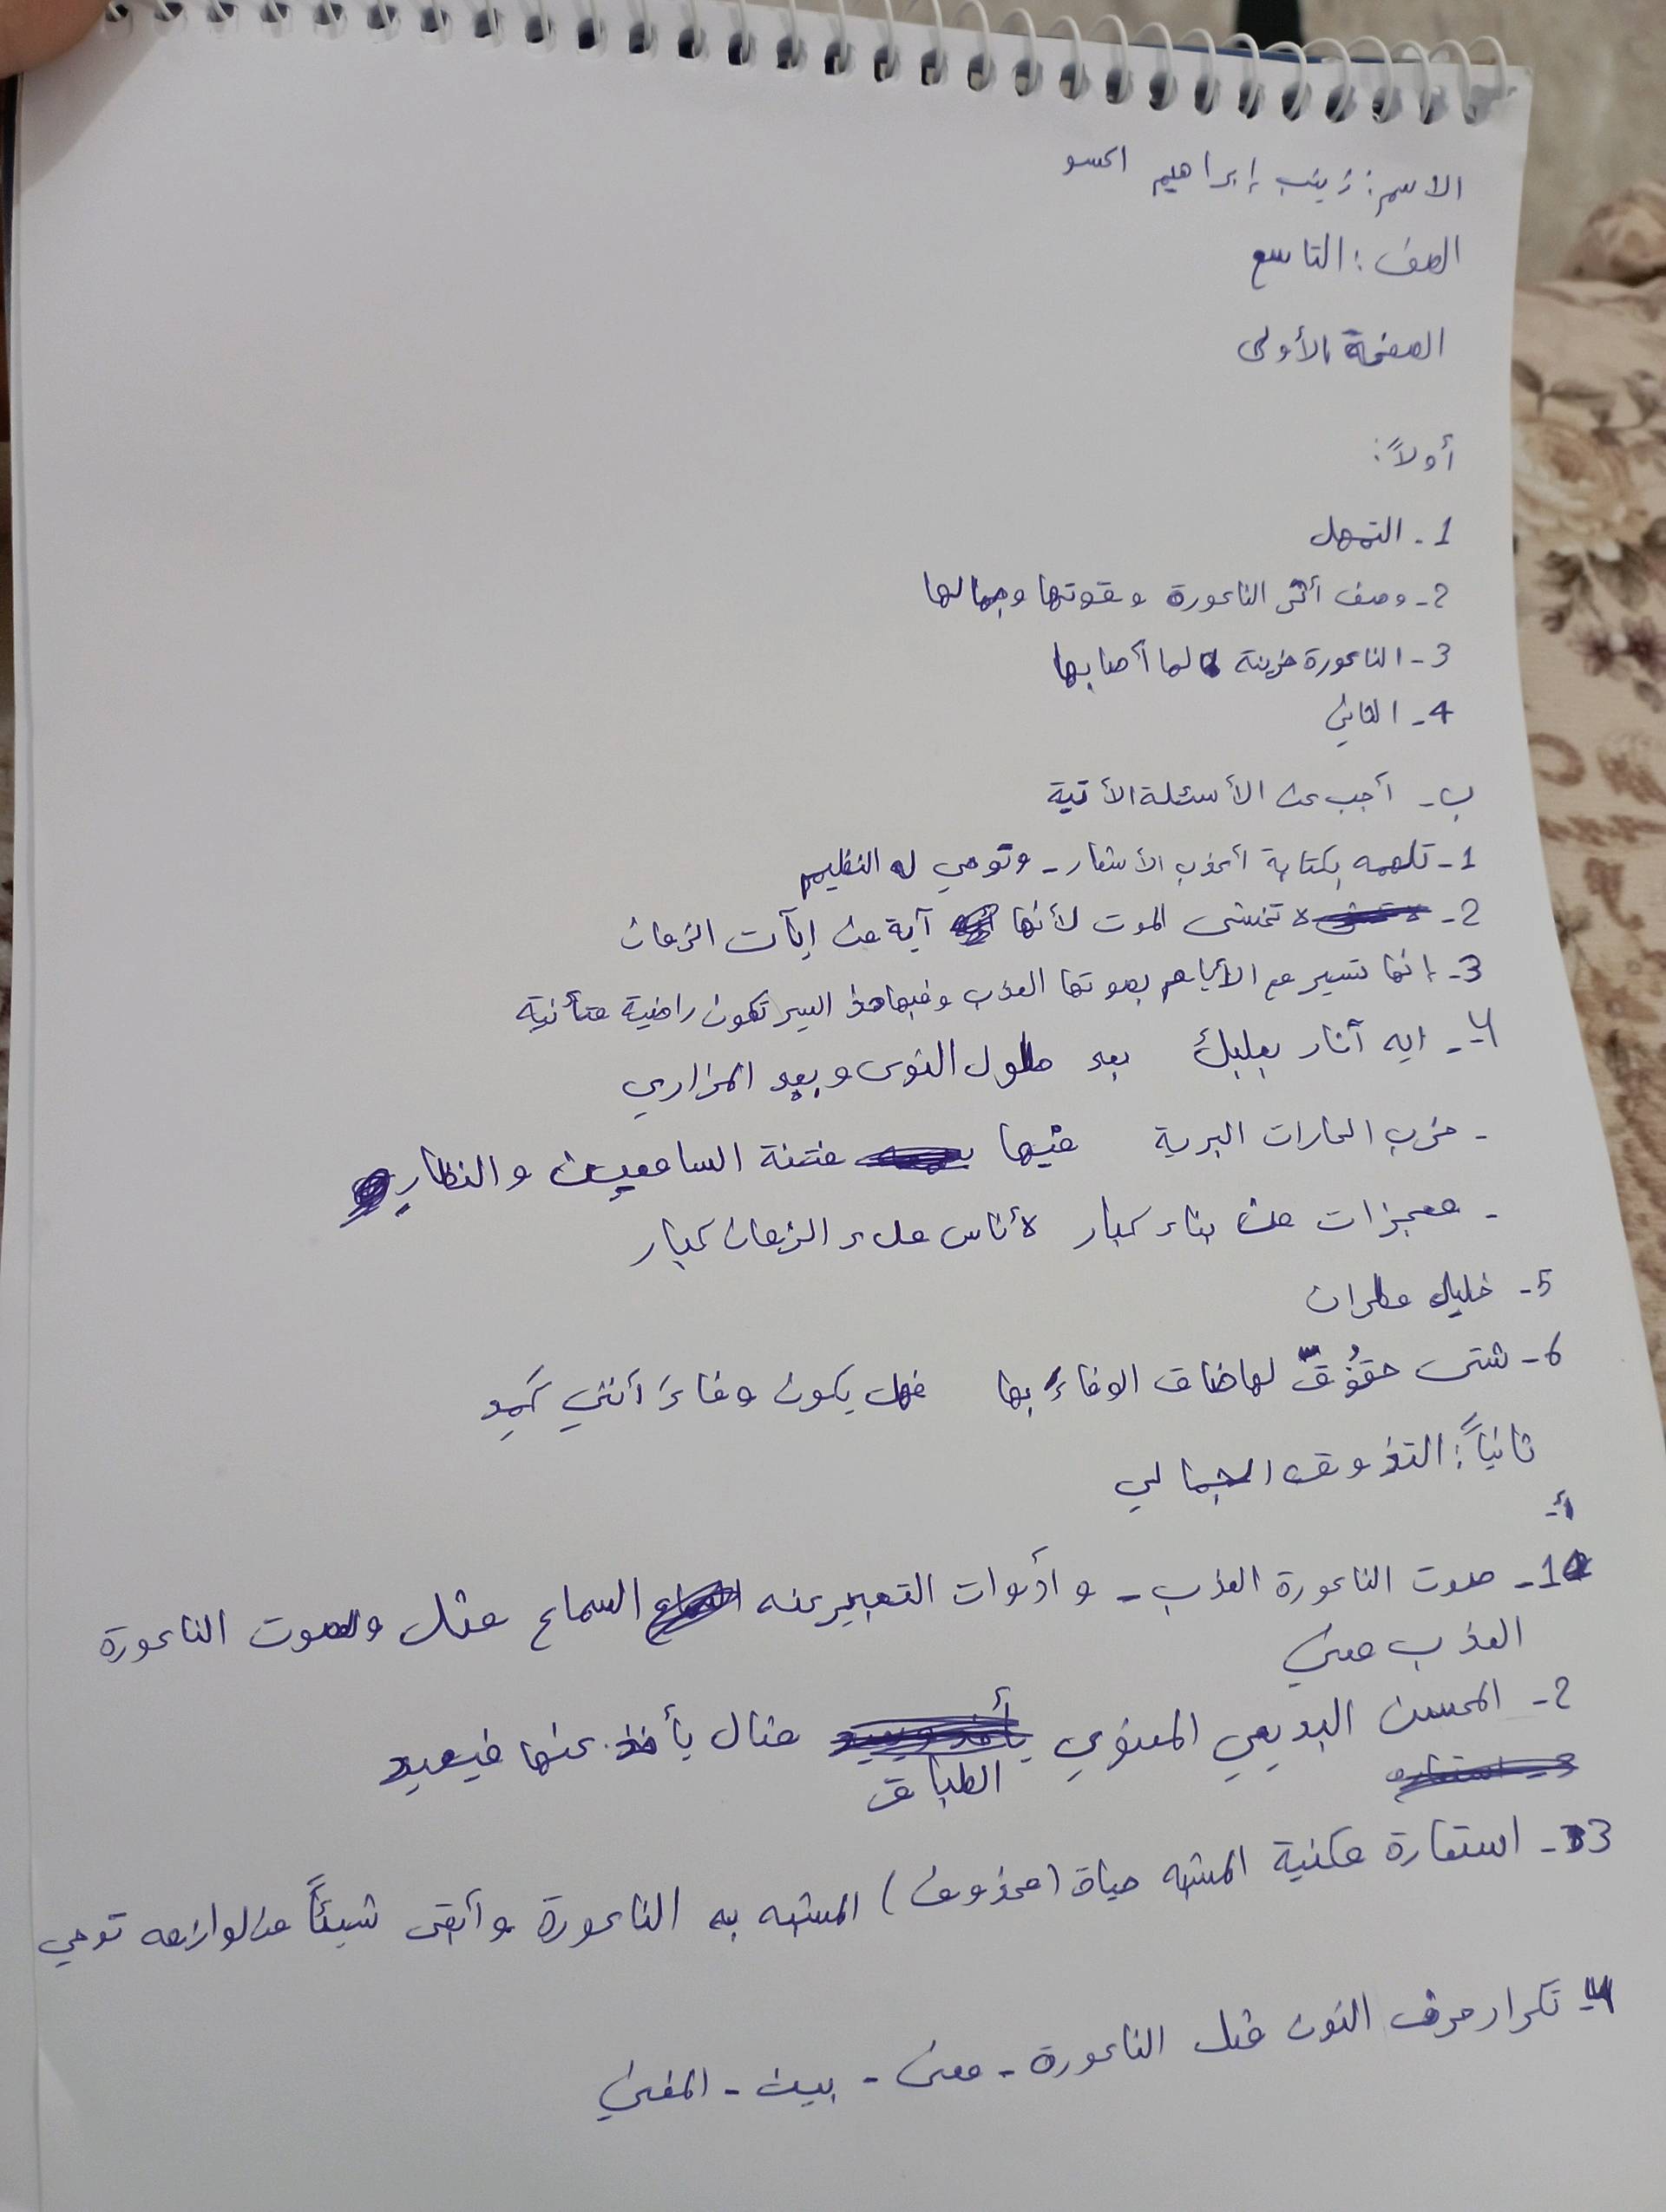 الاسم: زينب إبراهيم الحسو
الصف: التاسع
الصفحة الأولى
أولاً:
1- التمهل
2- وصف أثر الناعورة وقوتها وجمالها
3- الناعورة حزينة لما أصابها
4- الثاني
ب- أجب عن الأسئلة الأتية
1- تلهمه بكتابة أعذب الأشعار - وتوحي له النظيم
2- لا تخشى الموت لأنها آية من آيات الزمان
3- إنها تسير مع الأيام بصوتها العذب وفي هذا السير تكون راضية متأنية
4- ايه آثار بعلبك بعد طول النوى وبعد المزاري
- خرب الحارات البرية فيها فتنة السامعين والنظار
- معجزات من بناء كبار لأناس ملء الزمان كبار
5- خليل مطران
6- شتى حقوقٌ لها ضاق الوفاء بها فهل يكون وفاءً أنني كَمِد
ثانياً: التذوق الجمالي
أ-
1- صوت الناعورة العذب - وأدوات التعبير عنه السماع مثل وصوت الناعورة
العذب معنى
2- المحسن البديعي المعنوي الطباق مثال يأخذ عنها فيعيد
3- استعارة مكنية المشبه حياة (محذوف) المشبه به الناعورة وأبقى شيئاً من لوازمه توحي
4- تكرار حرف النون مثل الناعورة - معنى - بين - المغني